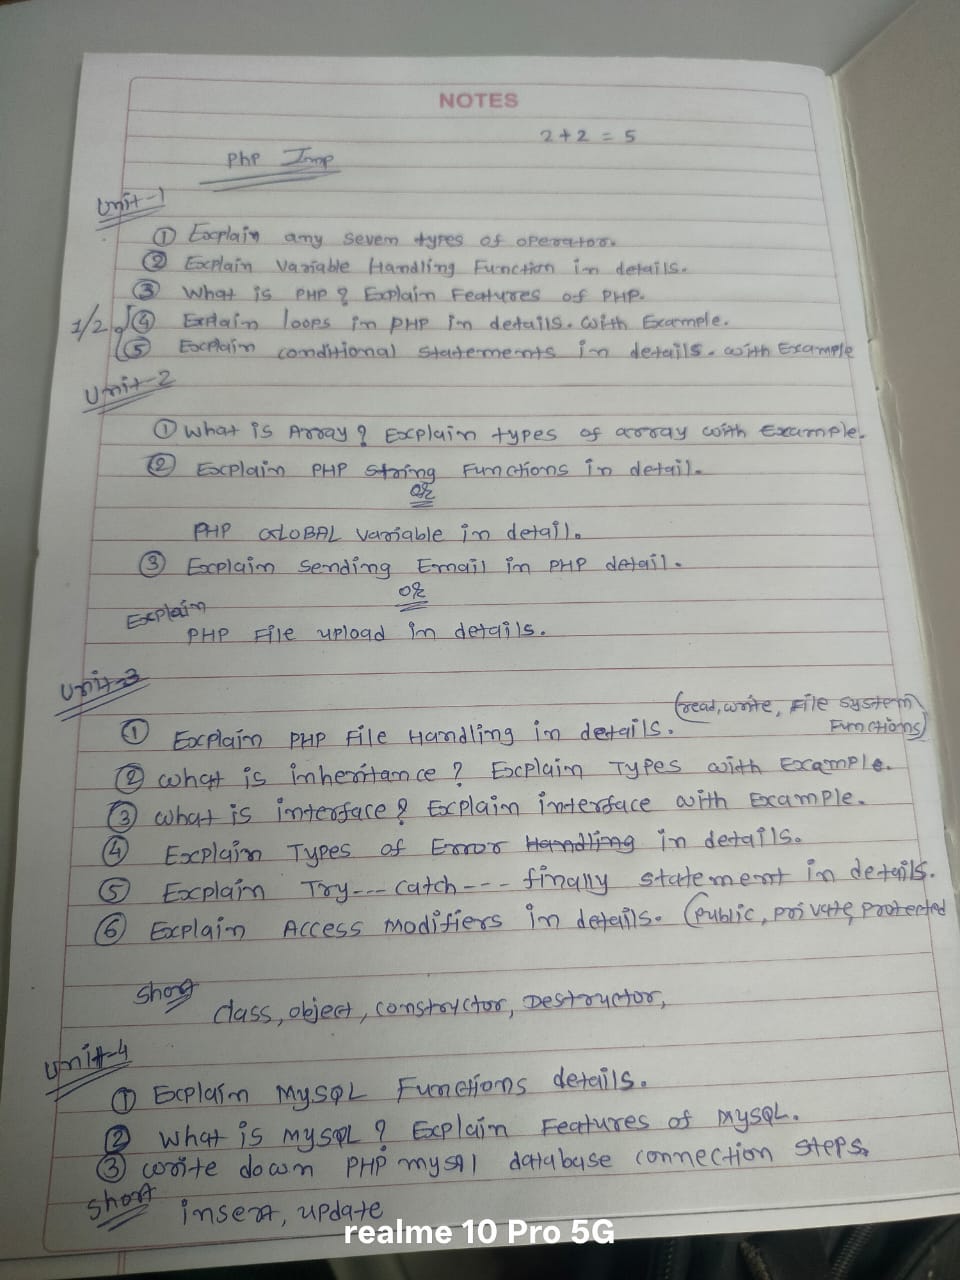 NOTES
2+2 = 5
PhP Imp
Unit-1
① Explain any seven types of operator.
② Explain Variable Handling Function in details.
③ What is PHP? Explain Features of PHP.
1/2 ④ Explain loops in PHP in details. with Example.
⑤ Explain conditional statements in details. with Example
Unit-2
① What is Array? Explain types of array with Example.
② Explain PHP String Functions in detail.
OR
PHP GLOBAL variable in detail.
③ Explain sending Email in PHP detail.
OR
Explain
PHP File upload in details.
Unit-3
(read, write, File system
Functions)
① Explain PHP File Handling in details.
② what is inheritance? Explain Types with Example.
③ what is interface? Explain interface with Example.
④ Explain Types of Error Handling in details.
⑤ Explain Try--- catch--- finally statement in details.
⑥ Explain Access modifiers in details. (public, private, protected
Short
class, object, constructor, Destructor,
Unit-4
① Explain MySQL Functions details.
② What is MySQL? Explain Features of MySQL.
③ write down PHP mysql database connection steps.
Short
insert, update
realme 10 Pro 5G